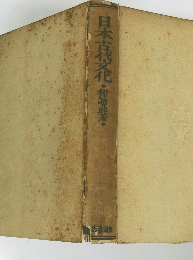 日本古代文化
和辻哲郎